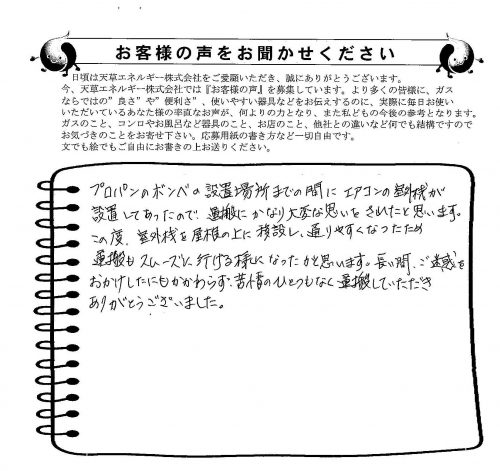 お客様の声をお聞かせください
日頃は天草エネルギー株式会社をご愛顧いただき、誠にありがとうございます。
今、天草エネルギー株式会社では『お客様の声』を募集しています。より多くの皆様に、ガス
ならではの”良さ”や”便利さ”、使いやすい器具などをお伝えするのに、実際に毎日お使い
いただいているあなた様の率直なお声が、何よりの力となり、また私どもの今後の参考となります。
ガスのこと、コンロやお風呂など器具のこと、お店のこと、他社との違いなど何でも結構ですので
お気づきのことをお寄せ下さい。応募用紙の書き方など一切自由です。
文でも絵でもご自由にお書きの上お送りください。
プロパンのボンベの設置場所までの間に エアコンの室外機が
設置してあったので、運搬に かなり大変な思いを されたと思います。
この度、室外機を屋根の上に移設し、通りやすくなったため
運搬もスムーズに 行ける様になったかと思います。長い間、ご迷惑を
おかけしたにもかかわらず、苦情のひとつもなく 運搬していただき
ありがとうございました。